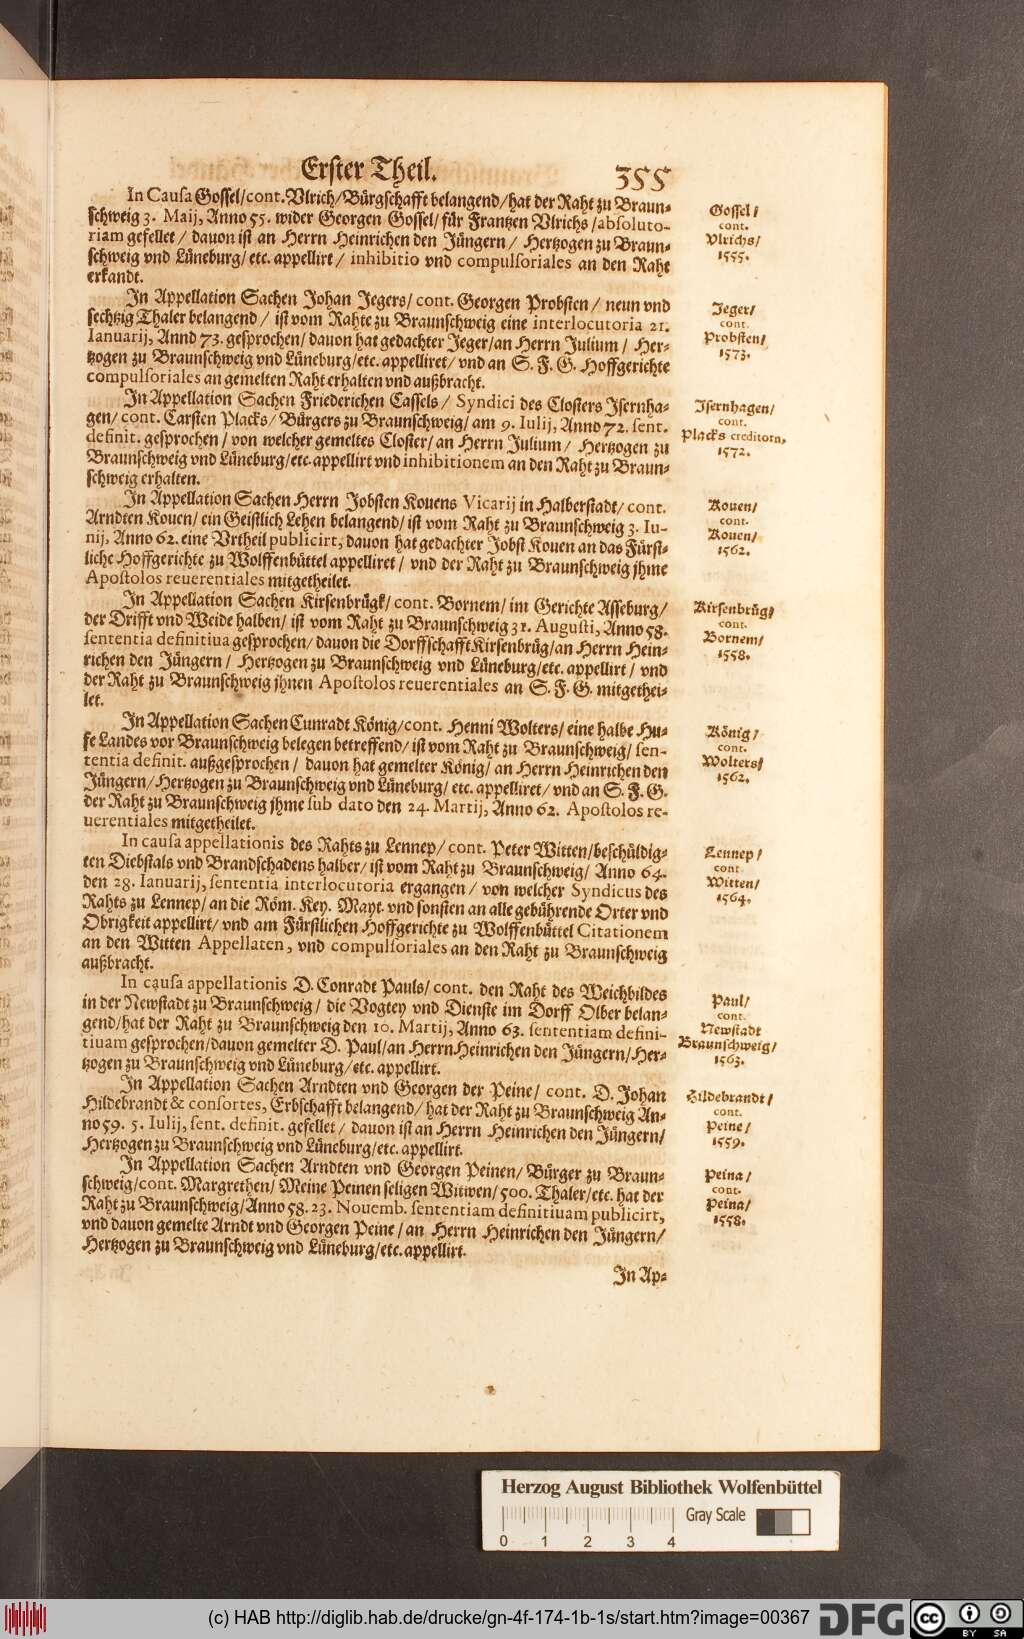 Erster Theil. 355
In Causa Gossel/cont. Vlrich/Bürgschafft belangend/hat der Raht zu Braun-
schweig 3. Maij, Anno 55. wider Georgen Gossel/für Frantzen Vlrichs/absoluto-
riam gefellet/ dauon ist an Herrn Heinrichen den Jüngern/ Hertzogen zu Braun-
schweig vnd Lüneburg/etc. appellirt/ inhibitio vnd compulsoriales an den Raht
erkandt.
Gossel/
cont.
Vlrichs/
1555.
In Appellation Sachen Johan Jegers/cont. Georgen Probsten/ neun vnd
sechtzig Thaler belangend/ ist vom Rahte zu Braunschweig eine interlocutoria 21.
Ianuarij, Anno 73. gesprochen/dauon hat gedachter Jeger/an Herrn Julium/ Her-
tzogen zu Braunschweig vnd Lüneburg/etc. appelliret/ vnd an S. F. G. Hoffgerichte
compulsoriales an gemelten Raht erhalten vnd außbracht.
Jeger/
cont.
Probsten/
1573.
In Appellation Sachen Friederichen Cassels/ Syndici des Closters Isernha-
gen/cont. Carsten Placks/Bürgers zu Braunschweig/am 9. Iulij, Anno 72. sent.
definit. gesprochen/ von welcher gemeltes Closter/an Herrn Julium/ Hertzogen zu
Braunschweig vnd Lüneburg/etc. appellirt vnd inhibitionem an den Raht zu Braun-
schweig erhalten.
Isernhagen/
cont.
Placks creditorn,
1572.
In Appellation Sachen Herrn Jobsten Kouens Vicarij in Halberstadt/cont.
Arndten Kouen/ein Geistlich Lehen belangend/ist vom Raht zu Braunschweig 3. Iu-
nij, Anno 62. eine Vrtheil publicirt, dauon hat gedachter Jobst Kouen an das Fürst-
liche Hoffgerichte zu Wolffenbüttel appelliret/ vnd der Raht zu Braunschweig jhme
Apostolos reuerentiales mitgetheilet.
Kouen/
cont.
Kouen/
1562.
In Appellation Sachen Kirsenbrügk/cont. Bornem/im Gerichte Asseburg/
der Drifft vnd Weide halben/ ist vom Raht zu Braunschweig 31. Augusti, Anno 58.
sententia definitiua gesprochen/dauon die Dorffschafft Kirsenbrüg/an Herrn Hein-
richen den Jüngern/ Hertzogen zu Braunschweig vnd Lüneburg/etc. appellirt/ vnd
der Raht zu Braunschweig jhnen Apostolos reuerentiales an S. F. G. mitgethei-
let.
Kirsenbrüg/
cont.
Bornem/
1558.
In Appellation Sachen Cunradt König/cont. Henni Wolters/eine halbe Hu-
fe Landes vor Braunschweig belegen betreffend/ist vom Raht zu Braunschweig/ sen-
tentia definit. außgesprochen/ dauon hat gemelter König/an Herrn Heinrichen den
Jüngern/Hertzogen zu Braunschweig vnd Lüneburg/etc. appelliret/vnd an S. F. G.
der Raht zu Braunschweig jhme sub dato den 24. Martij, Anno 62. Apostolos re-
uerentiales mitgetheilet.
König/
cont.
Wolters/
1562.
In causa appellationis des Rahts zu Lennep/cont. Peter Witten/beschüldig-
ten Diebstals vnd Brandschadens halber/ist vom Raht zu Braunschweig/ Anno 64.
den 28. Ianuarij, sententia interlocutoria ergangen/ von welcher Syndicus des
Rahts zu Lennep/an die Röm. Key. Mayt. vnd sonsten an alle gebührende Örter vnd
Obrigkeit appellirt/vnd am Fürstlichen Hoffgerichte zu Wolffenbüttel Citationem
an den Witten Appellaten, vnd compulsoriales an den Raht zu Braunschweig
außbracht.
Lennep/
cont.
Witten/
1564.
In causa appellationis D. Conradt Pauls/cont. den Raht des Weichbildes
in der Newstadt zu Braunschweig/ die Vogtey vnd Dienste im Dorff Olber belan-
gend/hat der Raht zu Braunschweig den 10. Martij, Anno 63. sententiam defini-
tiuam gesprochen/dauon gemelter D. Paul/an Herrn Heinrichen den Jüngern/Her-
tzogen zu Braunschweig vnd Lüneburg/etc. appellirt.
Paul/
cont.
Newstadt
Braunschweig/
1563.
In Appellation Sachen Arndten vnd Georgen der Peine/ cont. D. Johan
Hildebrandt & consortes, Erbschafft belangend/hat der Raht zu Braunschweig An-
no 59. 5. Iulij, sent. definit. gefellet/ dauon ist an Herrn Heinrichen den Jüngern/
Hertzogen zu Braunschweig vnd Lüneburg/etc. appellirt.
Hildebrandt/
cont.
Peine/
1559.
In Appellation Sachen Arndten vnd Georgen Peinen/ Bürger zu Braun-
schweig/cont. Margrethen/Meine Peinen seligen Witwen/500. Thaler/etc. hat der
Raht zu Braunschweig/Anno 58. 23. Nouemb. sententiam definitiuam publicirt,
vnd dauon gemelte Arndt vnd Georgen Peine/an Herrn Heinrichen den Jüngern/
Hertzogen zu Braunschweig vnd Lüneburg/etc. appellirt.
Peina/
cont.
Peina/
1558.
In Ap-
Herzog August Bibliothek Wolfenbüttel
Gray Scale
0 1 2 3 4
(c) HAB http://diglib.hab.de/drucke/gn-4f-174-1b-1s/start.htm?image=00367
DFG
cc
BY SA